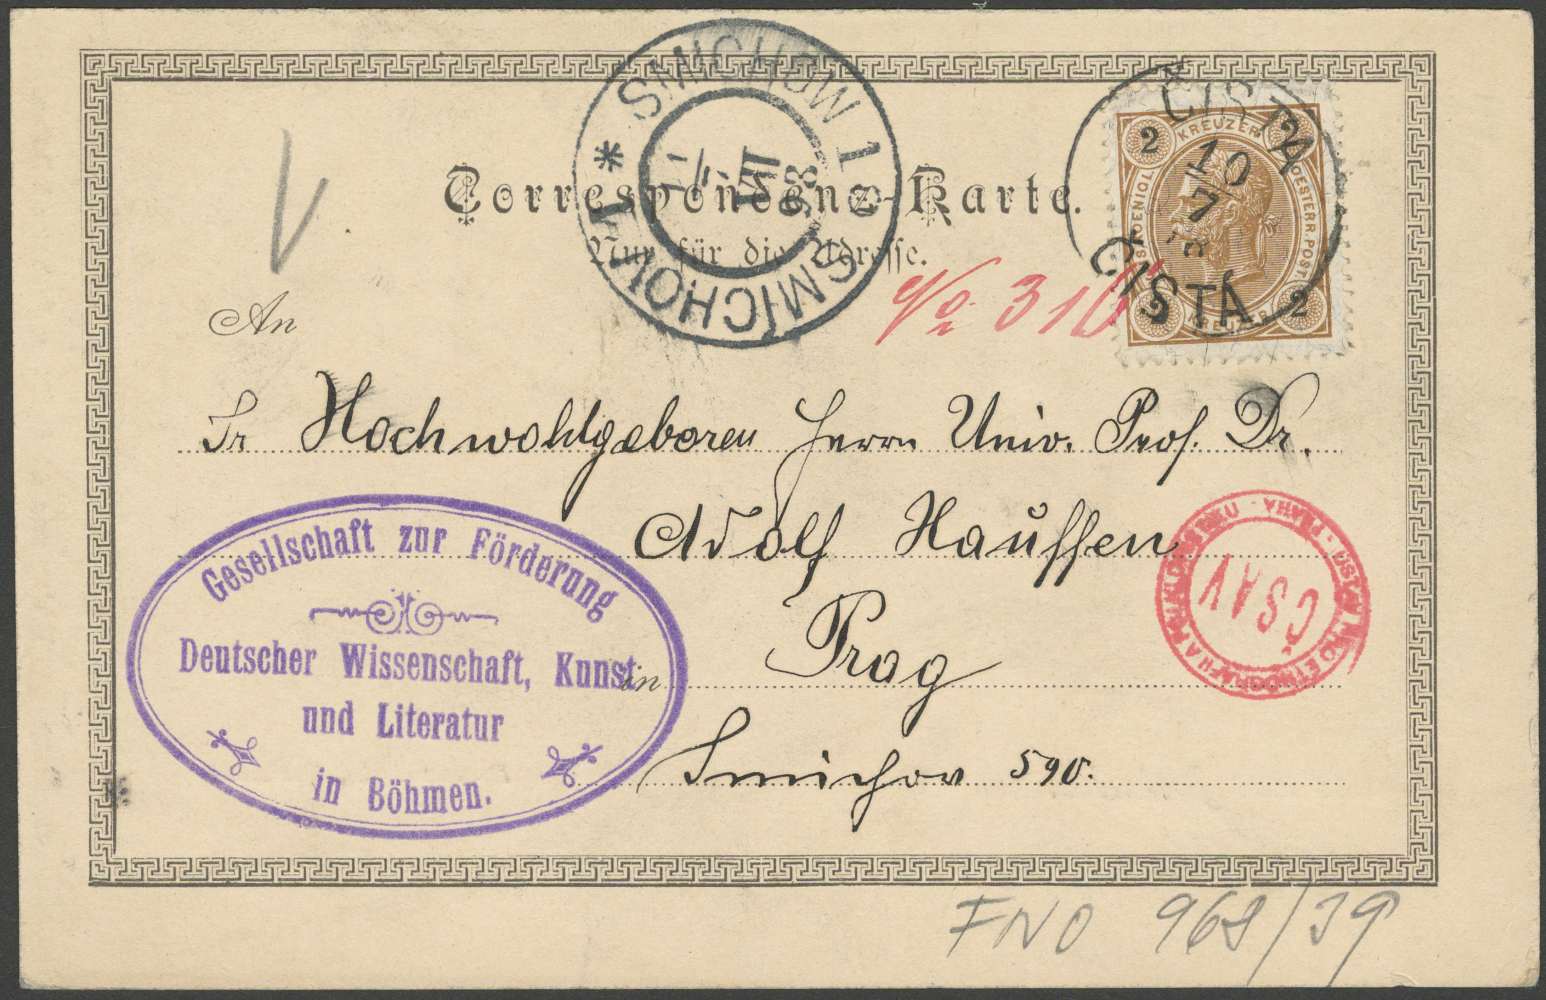 Correspondenz-Karte.
Nur für die Adresse.
* SMICHOW 1 *
SMÍCHOV 1
VII
98
ČISTÁ
10
7
98
ČISTA
2 KREUZER 2
KAIS.KOENIGL. OESTERR.POST.
2 KREUZER 2
№ 310
V
An
Sr Hochwohlgeboren Herrn Univ. Prof. Dr.
Adolf Hauffen
in Prag
Smichov 590.
Gesellschaft zur Förderung
Deutscher Wissenschaft, Kunst
und Literatur
in Böhmen.
ČSAV
PRAHA
FNO 968/39